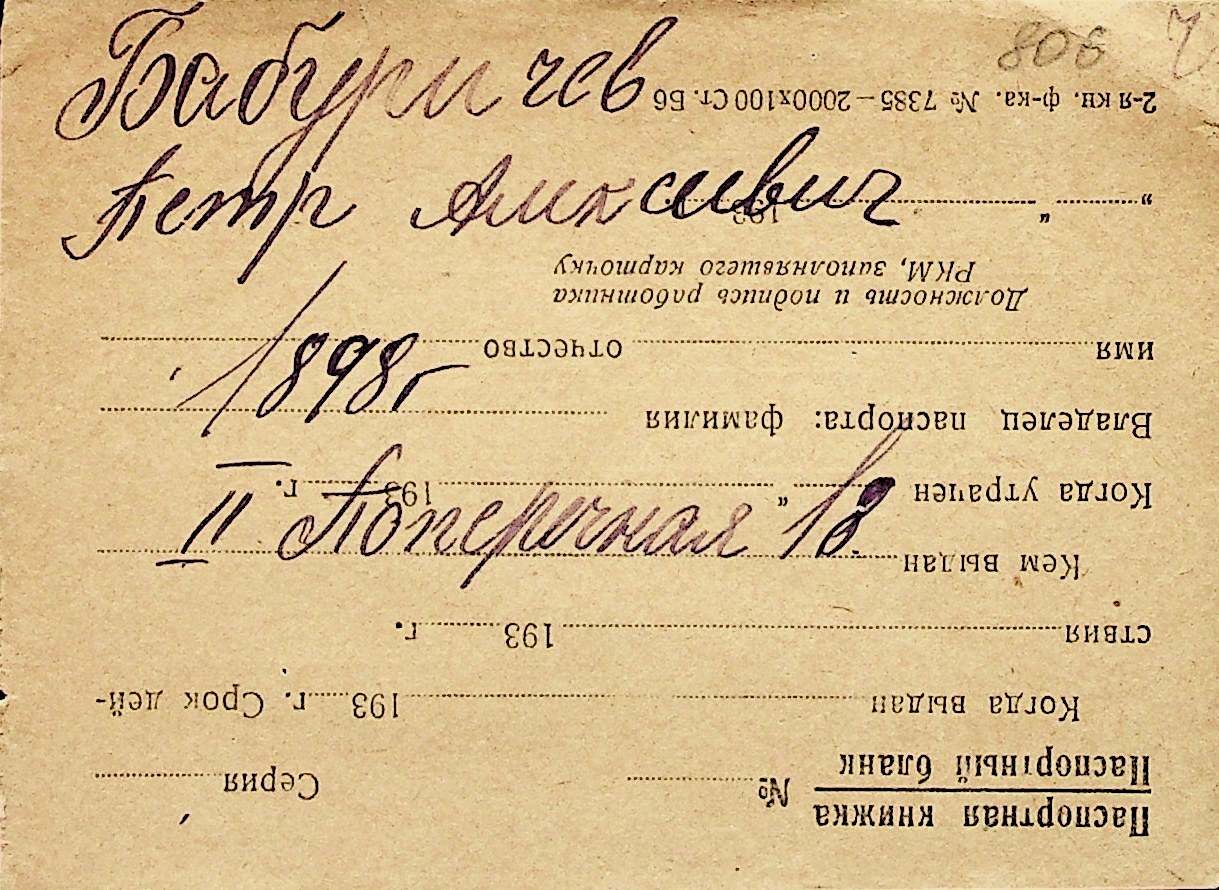 806
Бабуричев
Петр Алексеевич
1898г
II Поперечная 18
Паспортная книжка
Паспортный бланк
№ Серия
Когда выдан 193 г. Срок дей-
ствия 193 г.
Кем выдан
Когда утрачен „ 193 г.
Владелец паспорта: фамилия
имя отчество
Должность и подпись работника
РКМ, заполнявшего карточку
„ “ 193
2-я кн. ф-ка. № 7385—2000х100 Ст. Б6